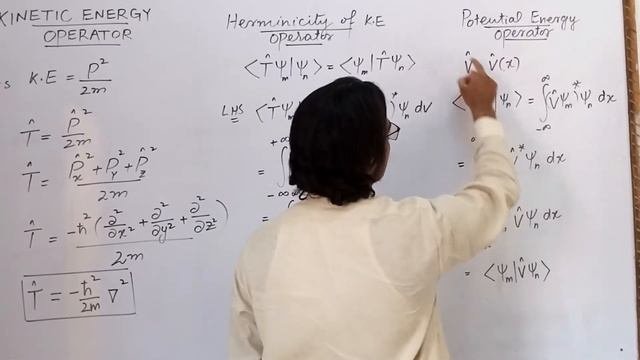 KINETIC ENERGY
OPERATOR
K.E = P²/2m
T̂ = P̂²/2m
T̂ = P̂x² + P̂y² + P̂z² / 2m
T̂ = -ħ² (∂²/∂x² + ∂²/∂y² + ∂²/∂z²) / 2m
T̂ = -ħ²/2m ∇²
Herminicity of K.E
operator
⟨T̂Ψm|Ψn⟩ = ⟨Ψm|T̂Ψn⟩
LHS ⟨T̂Ψm )* Ψn dV
+∞
= ∫
-∞
=
Potential Energy
operator
V̂ V̂(x)
⟨ ⟩ = ∫ (V̂Ψm)* Ψn dx
∞
-∞
= V̂* Ψn dx
= V̂ Ψn dx
= ⟨Ψm|V̂Ψn⟩